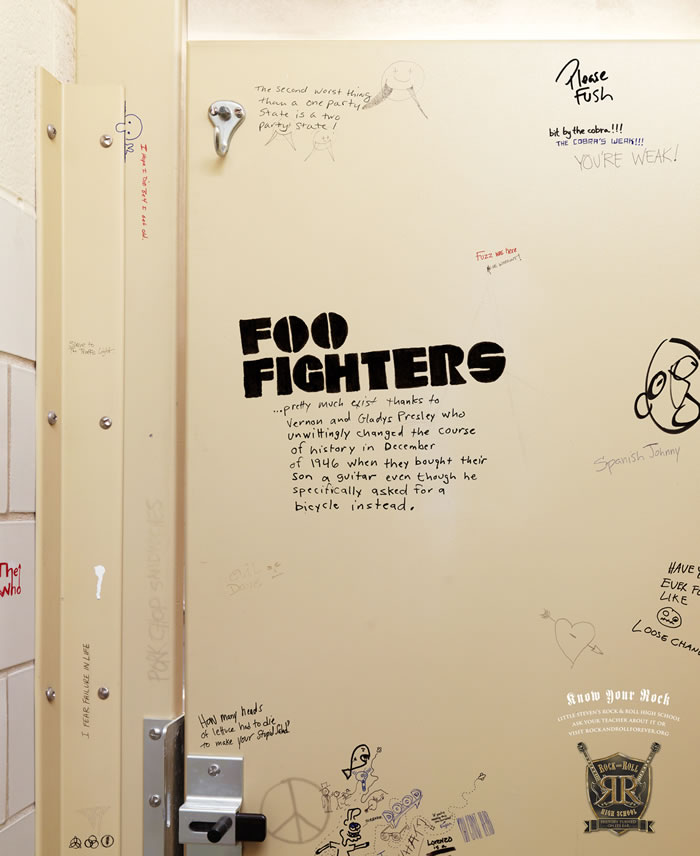 The second worst thing
than a one party
State is a two
party State!
Please
Fush
bit by the cobra!!!
THE COBRA'S WEAK!!!
YOU'RE WEAK!
I get old.
Fuzz was here
Traffic Light!
FOO
FIGHTERS
...pretty much exist thanks to
Vernon and Gladys Presley who
unwittingly changed the course
of history in December
of 1946 when they bought their
son a guitar even though he
specifically asked for a
bicycle instead.
Spanish Johnny
PORK CHOP SANDWICHES
The
Who
HAVE
EVER
LIKE
LOOSE
I FEAR FAILURE IN LIFE
How many heads
of lettuce had to die
to make your stupid salad?
Know Your Rock
LITTLE STEVEN'S ROCK & ROLL HIGH SCHOOL
ASK YOUR TEACHER ABOUT IT OR
VISIT ROCKANDROLLFOREVER.ORG
ROCK AND ROLL
RR
HIGH SCHOOL